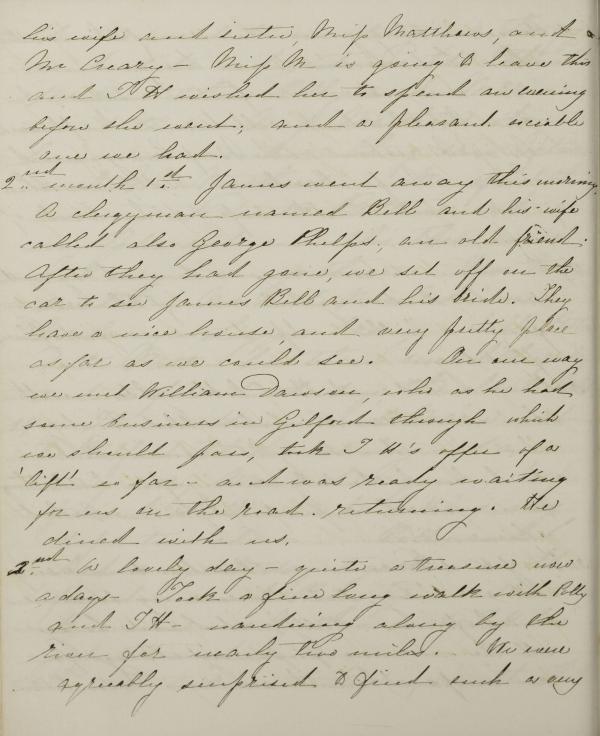 his wife and sister, Miss Matthews, and
Mr Creary - Miss M is going to leave this
and T H wished her to spend an evening
before she went; and a pleasant sociable
one we had.
2nd month 1st James went away this morning.
A clergyman named Bell and his wife
called also George Phelps, an old friend.
After they had gone, we set off on the
car to see James Bell and his bride. They
have a nice house, and very pretty place
as far as we could see. On our way
we met William Dawson, who as he had
some business in Gilford through which
we should pass, took T H's offer of a
'lift' so far - and was ready waiting
for us on the road returning. He
dined with us.
2nd A lovely day - quite a treasure now
a days - Took a fine long walk with Polly
and T H - wandering along by the
river for nearly two miles. We were
agreeably surprised to find such a very